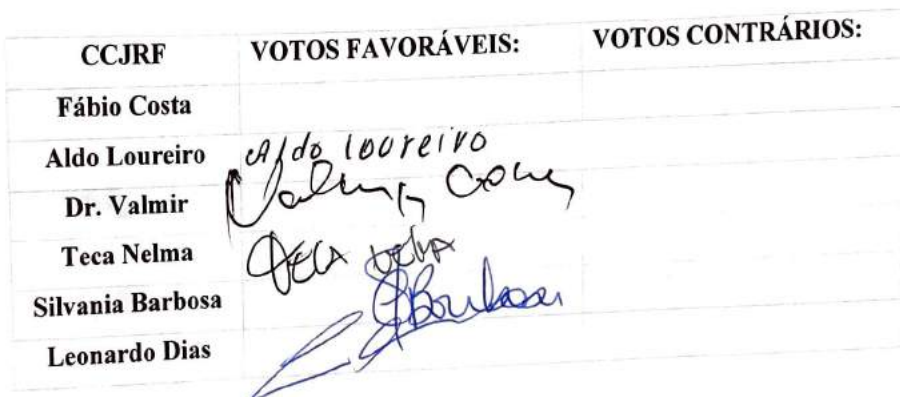 CCJRF VOTOS FAVORÁVEIS: VOTOS CONTRÁRIOS:
Fábio Costa
Aldo Loureiro Aldo loureiro
Dr. Valmir Valmir
Teca Nelma TECA NELMA
Silvania Barbosa SBarbosa
Leonardo Dias